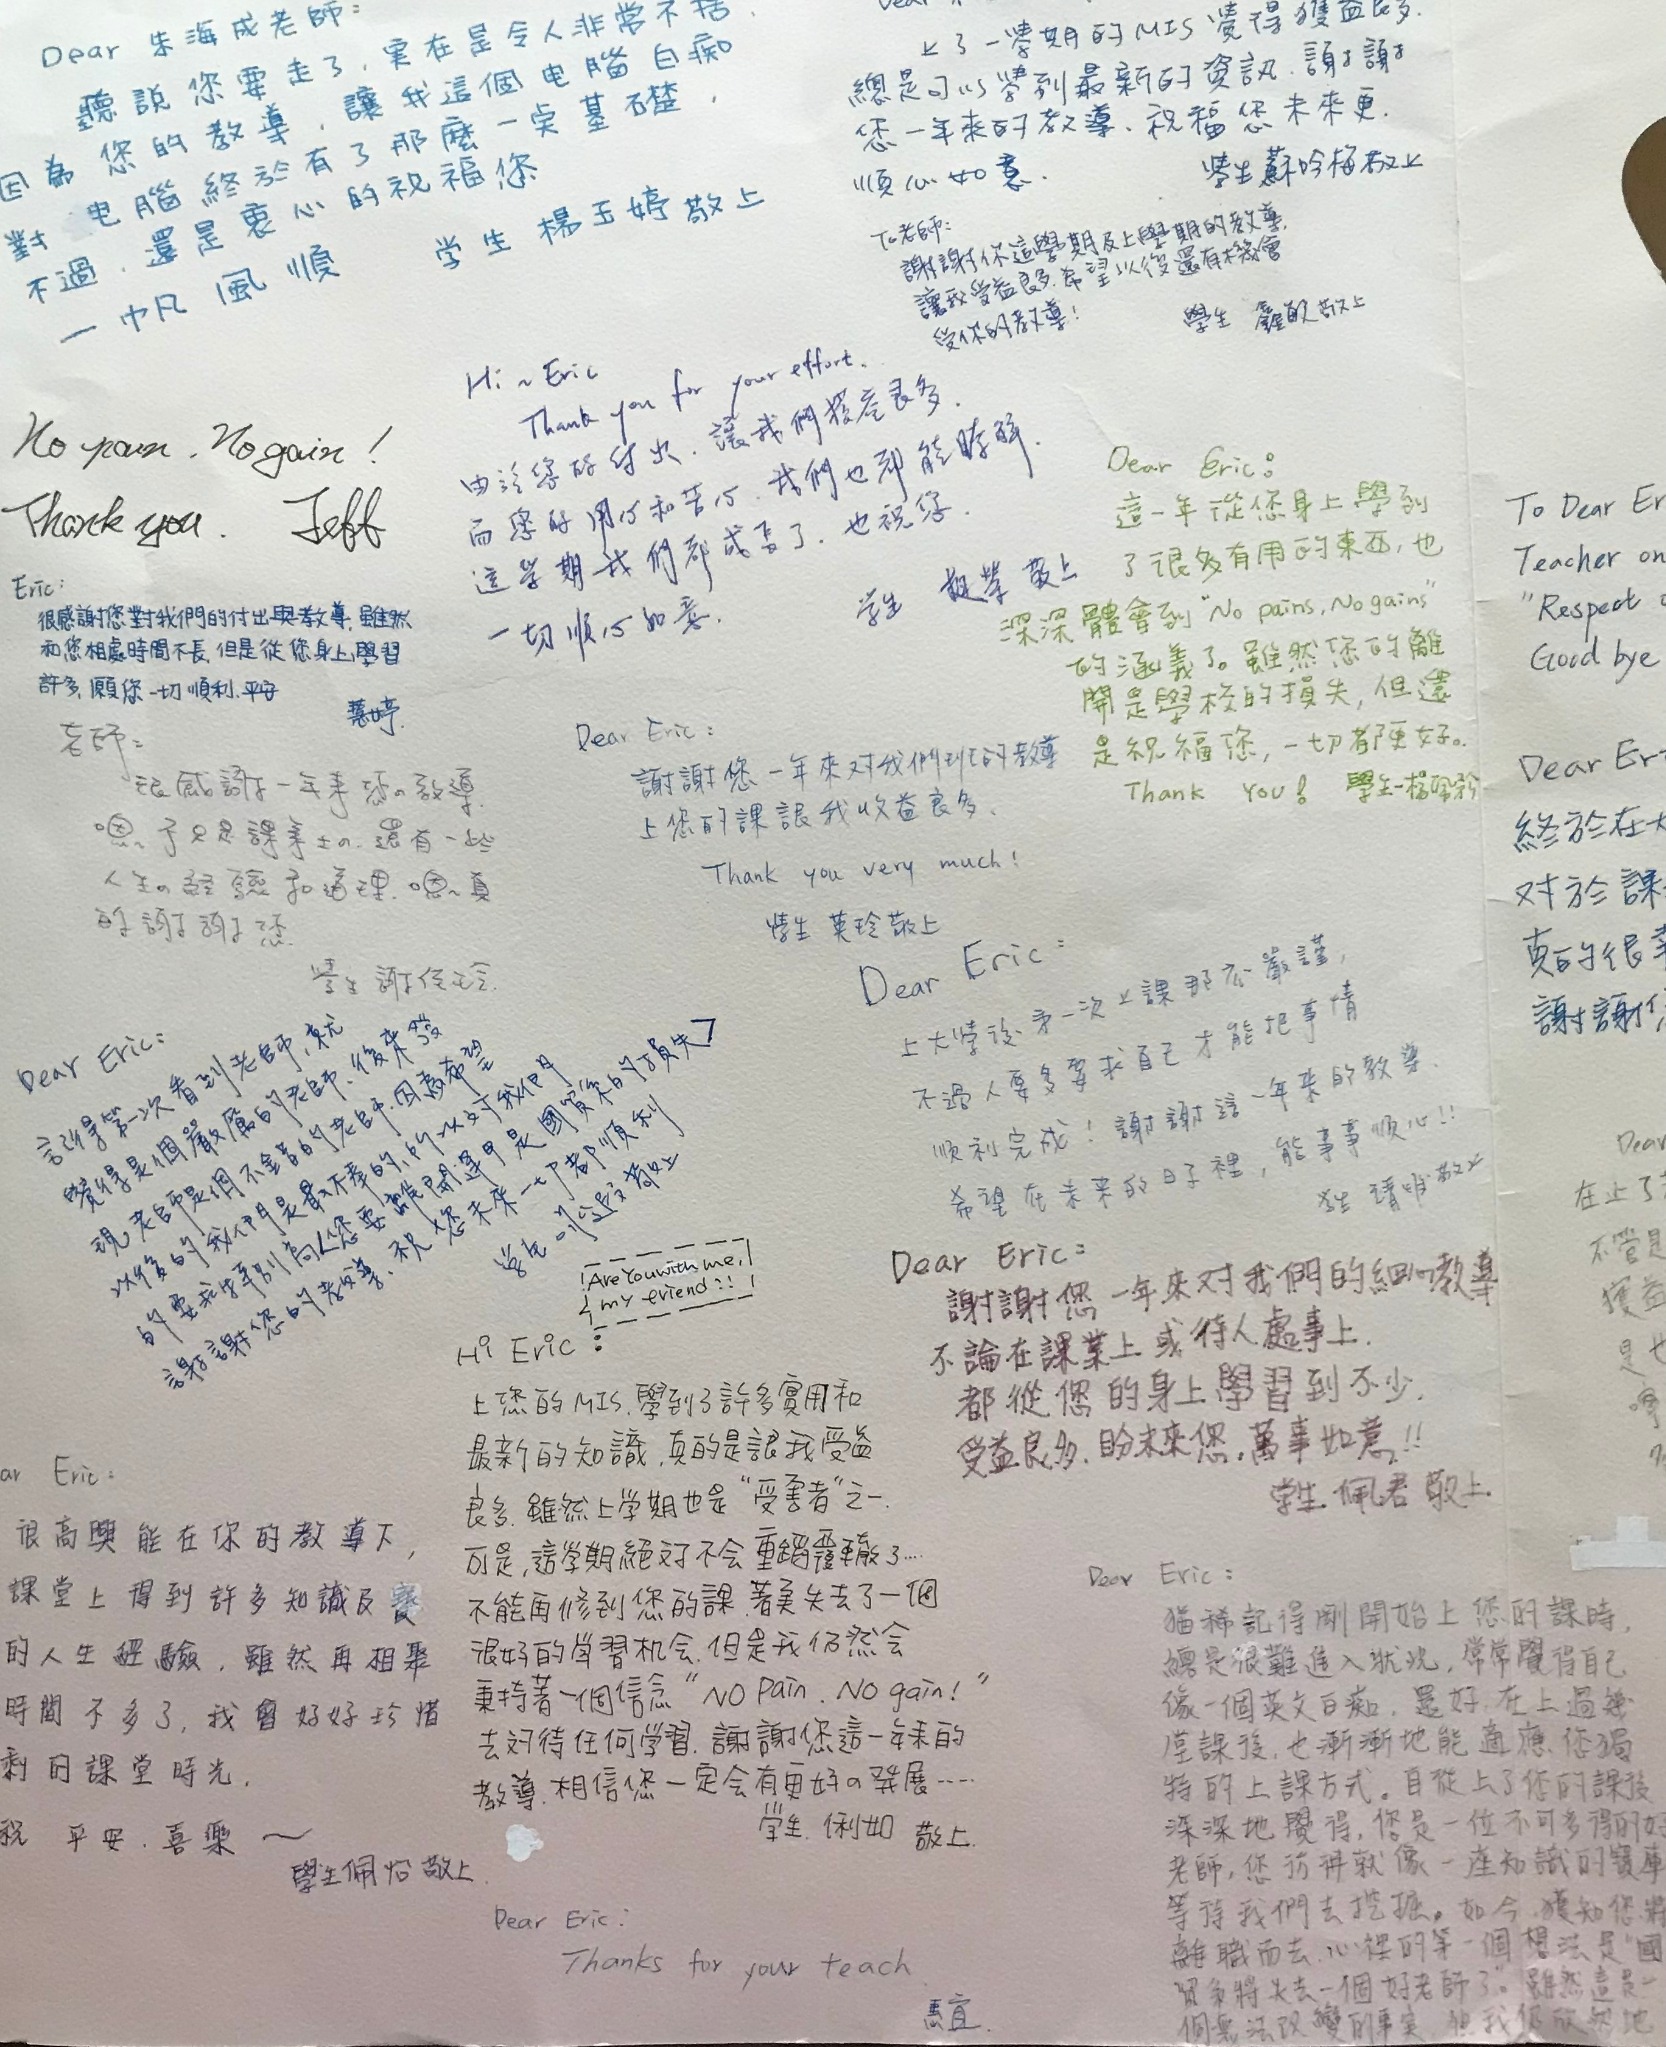 Dear 朱海成老師:
聽說您要走了,實在是令人非常不捨.
因為您的教導,讓我這個电腦白痴
對电腦終於有了那麼一点基礎,
不過,還是衷心的祝福您
一帆風順
学生 楊玉婷敬上
上了一學期的MIS覺得獲益良多.
總是可以學到最新的資訊.謝謝
您一年來的教導.祝福您未來更.
順心如意.
學生蘇吟梅敬上
To老師:
謝謝你這學期及上學期的教導,
讓我受益良多.希望以後還有機會
受你的教導!
學生 敬上
Hi ~ Eric
Thank you for your effort.
由於您的付出.讓我們獲益良多.
而您的用心和苦心.我們也都能瞭解.
這學期我們都成長了.也祝您.
一切順心如意.
学生 敬上
No pain. No gain!
Thank you. Jeff
Eric:
很感謝您對我們的付出與教導,雖然
和您相處時間不長,但是從您身上,學習
許多,願您一切順利.平安
蕙婷.
Dear Eric:
這一年從您身上學到
了很多有用的東西,也
深深體會到"No pains, No gains"
的涵義了。雖然您的離
開是學校的損失,但還
是祝福您,一切都更好。
Thank You! 學生楊
To Dear Er
Teacher on
"Respect
Good bye
老師:
很感謝一年來您の教導.
嗯~不只是課業上の.還有一些
人生の經驗和道理.嗯~真
的謝謝您.
學生 謝
Dear Eric:
謝謝您一年來对我們班的教導
上您的課讓我收益良多.
Thank you very much!
學生 英玲敬上
Dear Er
終於在大
对於課
真的很幸
謝謝你
Dear Eric:
上大學後第一次上課那麼嚴謹,
不過人要多要求自己才能把事情
順利完成!謝謝這一年來的教導.
希望在未來的日子裡,能事事順心!!
学生 靖 敬上
Dear Eric:
記得第一次看到老師,就
覺得是個嚴厲的老師,後來發
現老師是個不錯的老師.因為希望
以後的我們是最棒的,所以对我們
的要求特別高.您要離開運甲是國貿系的損失
謝謝您的教導.祝您未來一切都順利
学生 敬上
Are You with me,
my friend!!
Hi Eric:
上您的MIS,學到了許多實用和
最新的知識,真的是讓我受益
良多.雖然上学期也是"受害者"之一.
可是,這学期絕対不会重蹈覆轍了....
不能再修到您的課.著実失去了一個
很好的学習机会.但是我仍然会
秉持著一個信念"NO Pain. No gain!"
去対待任何学習.謝謝您這一年来的
教導.相信您一定会有更好の発展.....
学生.俐如 敬上.
Dear Eric:
謝謝您一年來对我們的細心教導
不論在課業上或待人處事上.
都從您的身上學習到不少.
受益良多.盼未來您,萬事如意!!
学生.佩君 敬上
ar Eric:
很高興能在你的教導下,
課堂上得到許多知識及寶
的人生經驗,雖然再相聚
時間不多了,我會好好珍惜
剩的課堂時光.
祝 平安.喜樂~
學生佩怡敬上
Dear Eric:
Thanks for your teach.
惠宜.
Dear Eric:
猶稀記得剛開始上您的課時,
總是很難進入狀況,常常覺得自己
像一個英文白痴.還好,在上過幾
堂課後,也漸漸地能適應您獨
特的上課方式。自從上了您的課後
深深地覺得,您是一位不可多得的好
老師,您彷彿就像一座知識的寶庫
等待我們去挖掘。如今,獲知您將
離職而去,心裡的第一個想法是"國
貿系將失去一個好老師了"。雖然這是一
個無法改變的事實 但我仍欣然地
Dear
在上了
不管是
獲益
是也